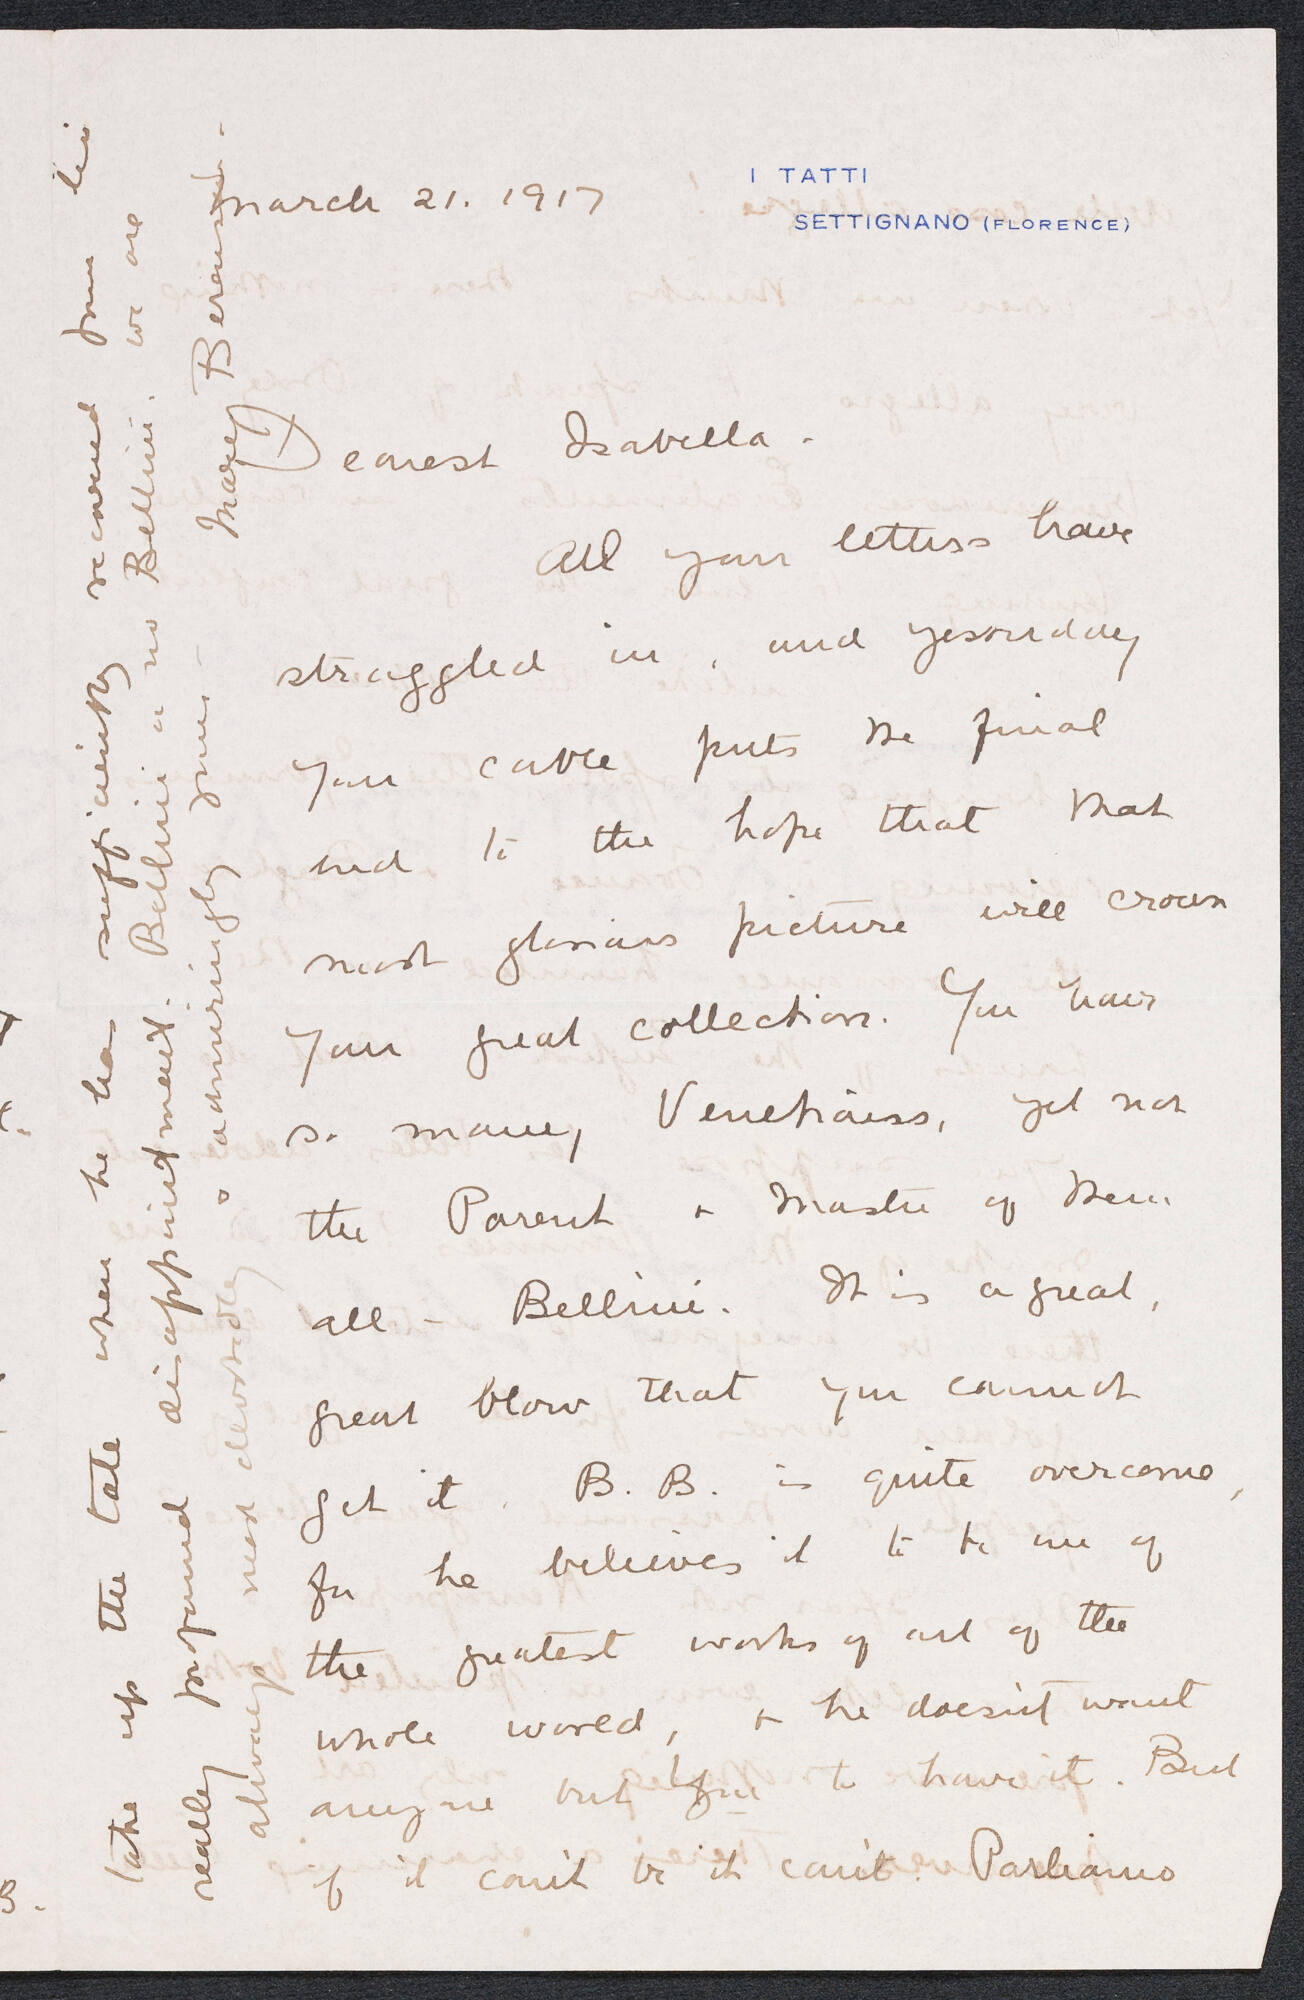 March 21. 1917
I TATTI
SETTIGNANO (FLORENCE)
Dearest Isabella -
All your letters have
straggled in, and yesterday
your cable puts the final
end to the hope that that
most glorious picture will crown
your great collection. You have
so many Venetians, yet not
the Parent & Master of them
all - Bellini. It is a great,
great blow that you cannot
get it. B. B. is quite overcome,
for he believes it to be one of
the greatest works of art of the
whole world, & he doesn't want
anyone but you to have it. But
if it can't be it can't. Parliamo
take up the tale when he has sufficiently recovered from his
really profound disappointment. Bellini or no Bellini, we are
always most devotedly & admiringly yours - Mary Berenson -